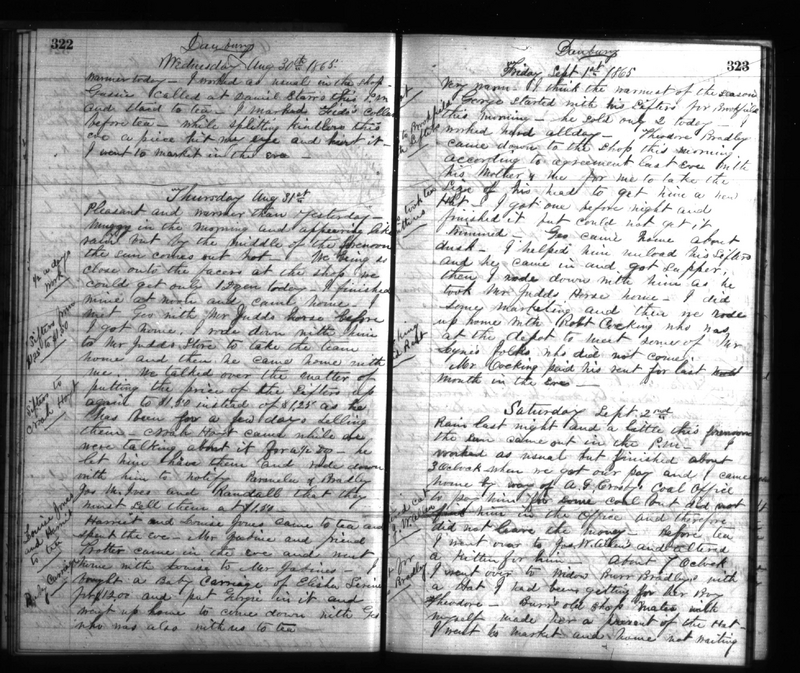 322
Danbury
Wednesday Aug 30th 1865
Warmer today — I worked as usual in the shop.
Gussie called at Daniel Starrs this P.m
and staid to tea — I marked Fred's Collar
before tea — While splitting kindlers this
eve a piece hit my eye and hurt it
I went to market in the eve —
Thursday Aug 31st
Pleasant and warmer than yesterday —
Muggy in the morning and appearing like
rain but by the middle of the forenoon
the sun comes out hot — We being so
close onto the facers at the shop we
could get only 1 dozen today — I finished
mine at noon and came home — I
met Geo with Mr Judds horse before
I got home. I rode down with him
to Mr Judds Store to take the team
home and then he came home with
me — We talked over the matter of
putting the price of the Sifters up
again to $1.50 insted of $1.25 as he
has been for a few days selling
them — Noah Hoyt came while we
were talking about it for — he
let him have them and rode down
with him to notify & Bradley
Jos and Randall that they
must sell them at $1.50
Harriet and Louise Jones came to tea and
spent the eve — Mr and friend
Trotter came in the eve and went
home with Louise to Mr — I
bought a Baby Carriage of Elisha
for $12.00 and put Georgie in it and
went up home to come down with Geo
who was also with us to tea
½ a days work
Sifters from to $1.50
Sifters to Noah Hoyt
Louise Jones and Harriet to tea
Baby Carriage
323
Danbury
Friday Sept 1st 1865
Very warm. I think the warmest of the season
George started with his Sifters for Brookfield
this morning — he sold only 2 today —
worked hard all day — Theodore Bradley
came down to the shop this morning
according to agreement last eve with
his Mother & me for me to take the
Size of his head to get him a new
Hat — I got one before night and
finished it but could not get it
trimmed — Geo came home about
dusk — I helped him unload his Sifters
and he came in and got supper,
then I rode down with him as he
took Mr Judds Horse home — I did
some marketing and then we rode
up home with Robt Cocking who was
at the depot to meet some of Mr
folks who did not come.
Mr Cocking paid his rent for last
month in the eve —
Saturday Sept. 2nd
Rain last night and a little this forenoon
the sun came out in the P.m. I
worked as usual but finished about
3 Oclock when we got our pay and I came
home by way of A. G. Crosby's Coal Office
to pay him for some coal but did not
find him in the Office and therefore
did not leave the money — Before tea
I went over to and altered
a Kitten for him — About 7 Oclock
I went over to Widow Burr Bradleys with
a Hat I had been getting for her Boy
Theodore — Burrs old shop mates with
myself made her a present of the Hat —
I went to market and home not waiting